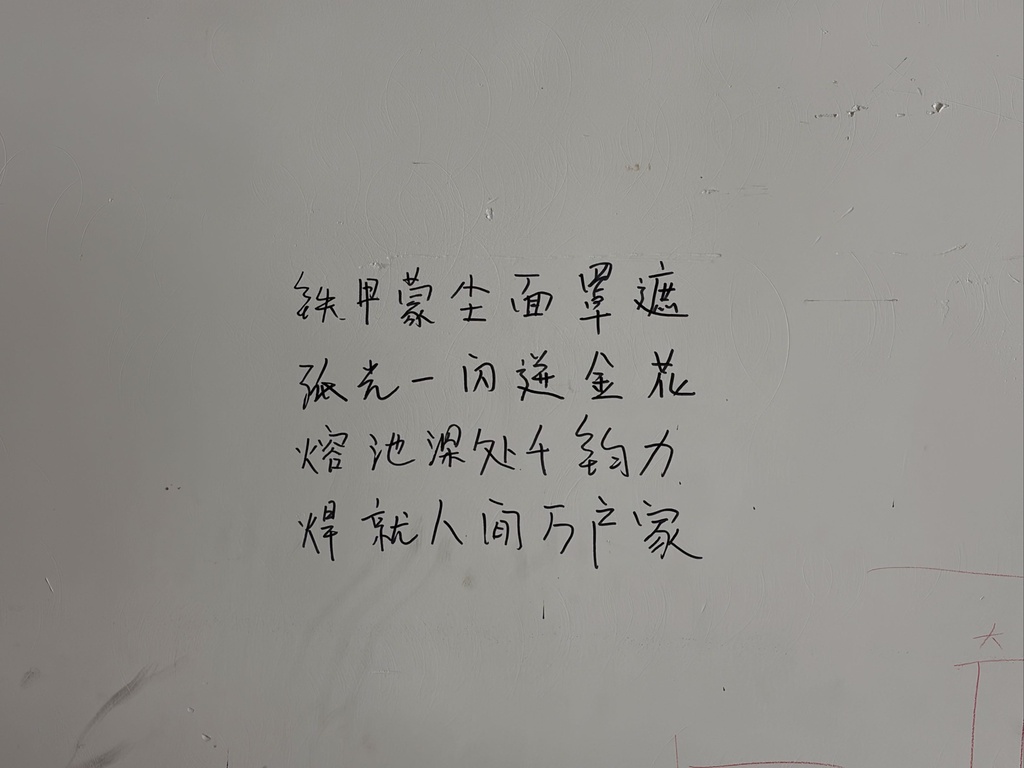 铁甲蒙尘面罩遮
弧光一闪迸金花
熔池深处千钧力
焊就人间万户家